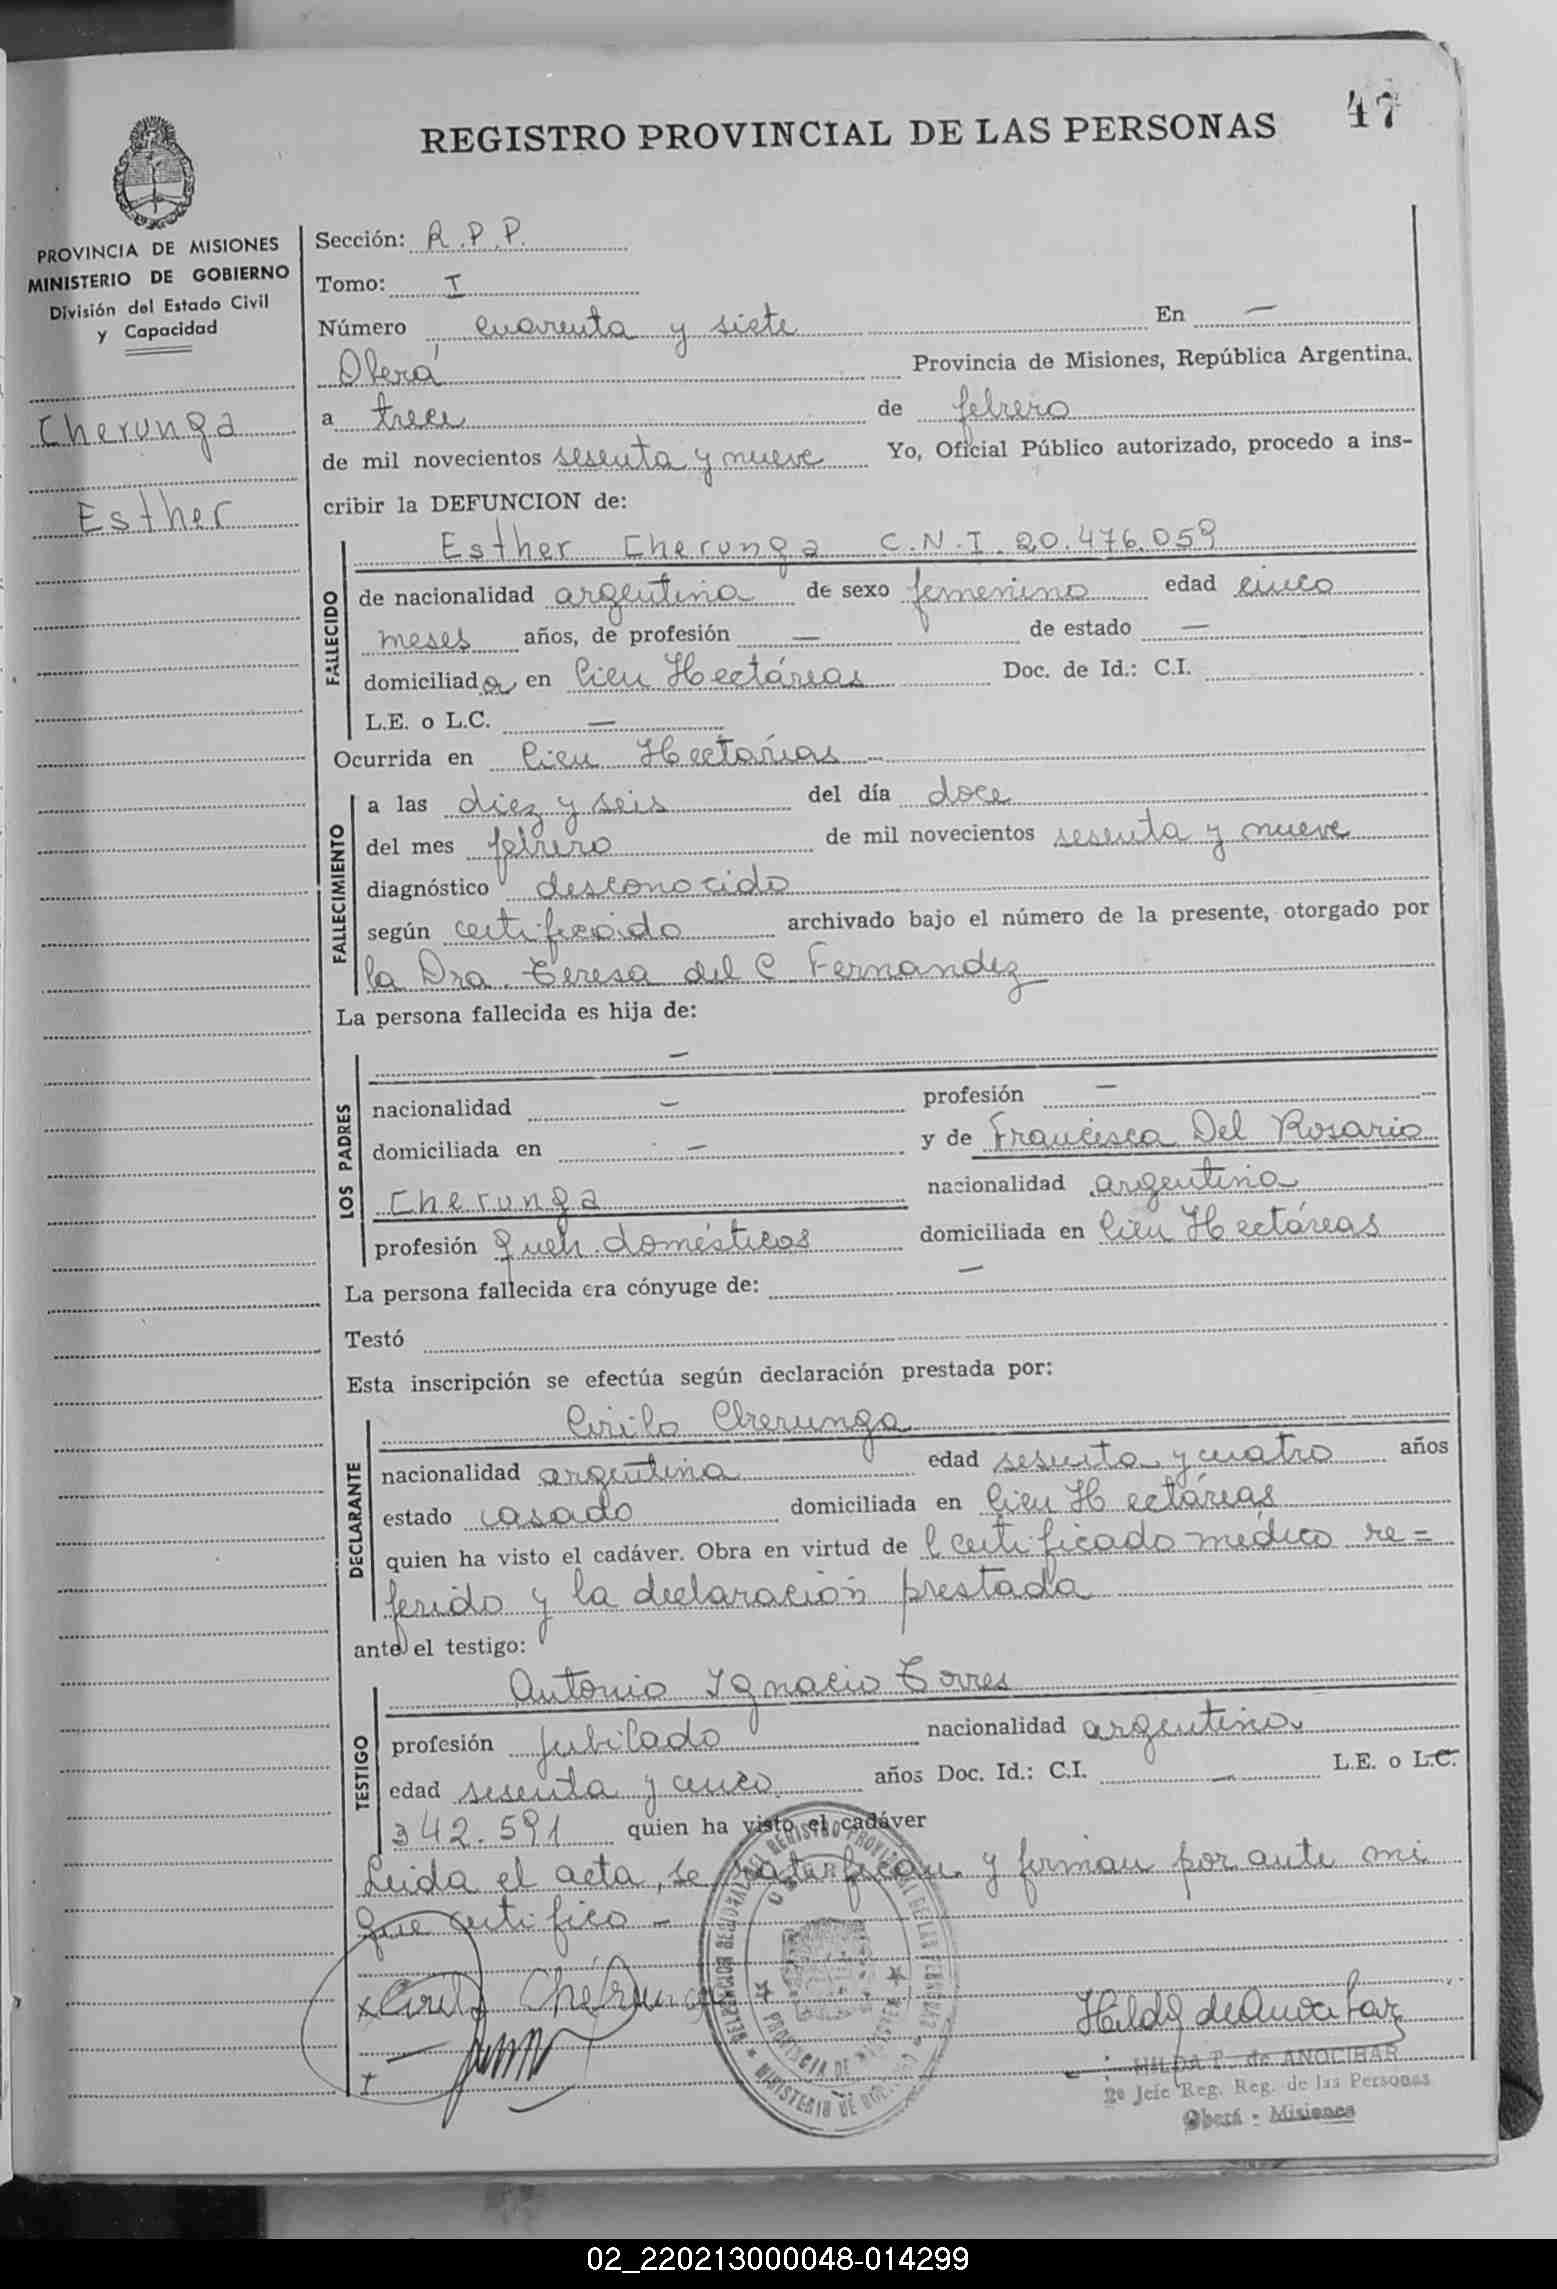 47
REGISTRO PROVINCIAL DE LAS PERSONAS
PROVINCIA DE MISIONES
MINISTERIO DE GOBIERNO
División del Estado Civil
y Capacidad
Cherunga
Esther
Sección: R.P.P.
Tomo: I
Número cuarenta y siete En —
Oberá Provincia de Misiones, República Argentina,
a trece de febrero
de mil novecientos sesenta y nueve Yo, Oficial Público autorizado, procedo a ins-
cribir la DEFUNCION de:
FALLECIDO
Esther Cherunga C.N.I. 20.476.059
de nacionalidad argentina de sexo femenino edad cinco
meses años, de profesión — de estado —
domiciliada en Cien Hectáreas Doc. de Id.: C.I.
L.E. o L.C. —
Ocurrida en Cien Hectáreas
FALLECIMIENTO
a las diez y seis del día doce
del mes febrero de mil novecientos sesenta y nueve
diagnóstico desconocido
según certificado archivado bajo el número de la presente, otorgado por
la Dra. Teresa del C Fernandez
La persona fallecida es hija de:
LOS PADRES
—
nacionalidad — profesión —
domiciliada en — y de Francisca Del Rosario
Cherunga nacionalidad argentina
profesión queh. domésticos domiciliada en Cien Hectáreas
La persona fallecida era cónyuge de: —
Testó
Esta inscripción se efectúa según declaración prestada por:
DECLARANTE
Cirilo Cherunga
nacionalidad argentina edad sesenta y cuatro años
estado casado domiciliada en Cien Hectáreas
quien ha visto el cadáver. Obra en virtud de l certificado médico re=
ferido y la declaración prestada
ante el testigo:
TESTIGO
Antonio Ignacio Torres
profesión jubilado nacionalidad argentina
edad sesenta y cinco años Doc. Id.: C.I. — L.E. o L.C.
342.591 quien ha visto el cadáver
Leida el acta, se ratifican y firman por ante mi
que certifico —
x Cirilo Cherunga
HILDA T. de ANOCIBAR
2º Jefe Reg. Reg. de las Personas
Oberá - Misiones
DELEGACION REGIONAL DEL REGISTRO PROVINCIAL DE LAS PERSONAS
PROVINCIA DE MISIONES
MINISTERIO DE GOBIERNO
02_220213000048-014299